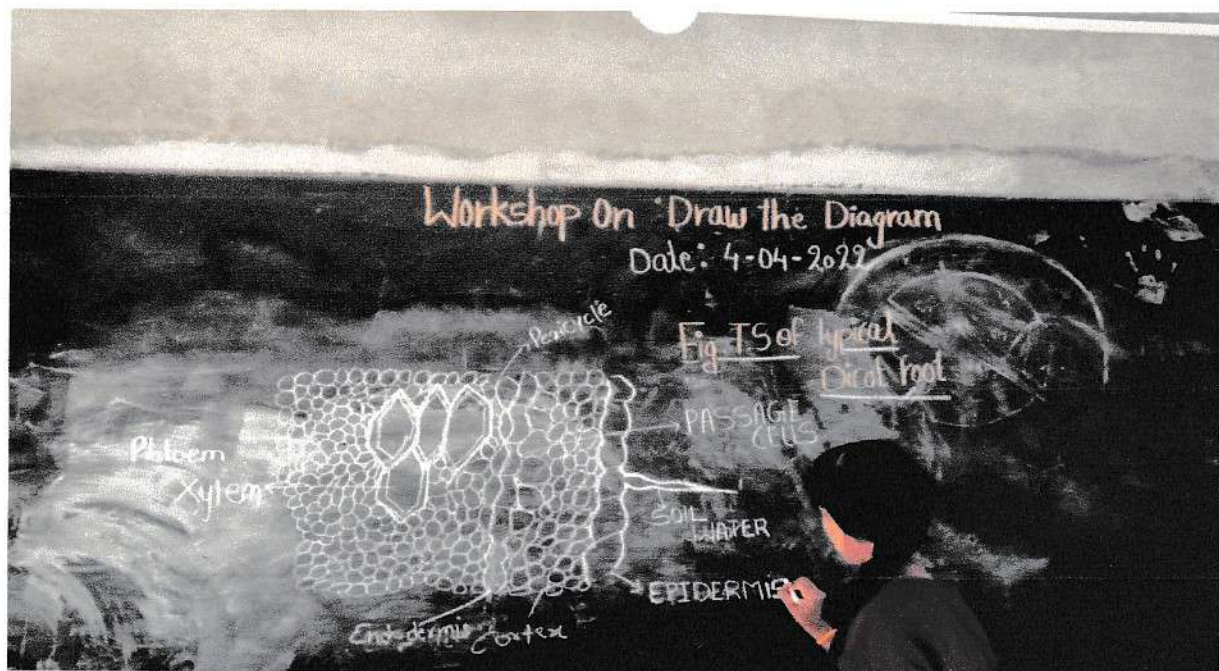 Workshop On 'Draw the Diagram
Date: 4-04-2022
Pericycle
Fig TS of typical
Dicot root
PASSAGE
CELLS
Phloem
Xylem
SOIL
WATER
EPIDERMIS
Endodermis
Cortex